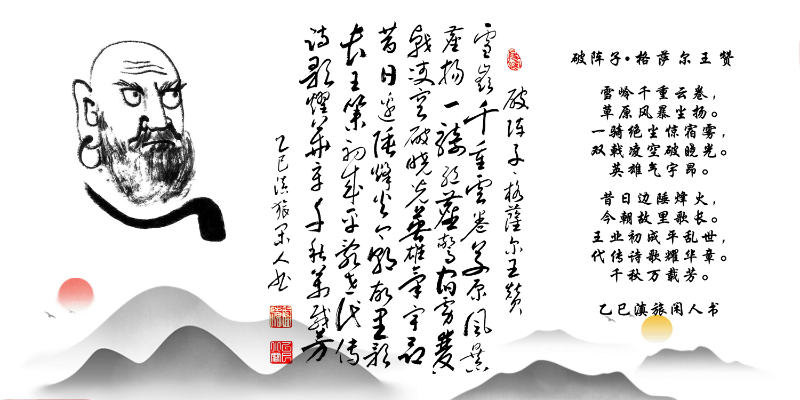 破阵子·格薩尔王赞
雪嶺千重雲卷草原風暴
塵扬一骑绝塵驚宿雾雙
戟凌空破晓光英雄氣宇昂
昔日边陲烽火今朝故里歌
长王業初成平乱世代传
诗歌耀華章千秋萬载芳
乙巳滇旅闲人书
破阵子·格萨尔王赞
雪岭千重云卷，
草原风暴尘扬。
一骑绝尘惊宿雾，
双戟凌空破晓光。
英雄气宇昂。
昔日边陲烽火，
今朝故里歌长。
王业初成平乱世，
代传诗歌耀华章。
千秋万载芳。
乙巳滇旅闲人书